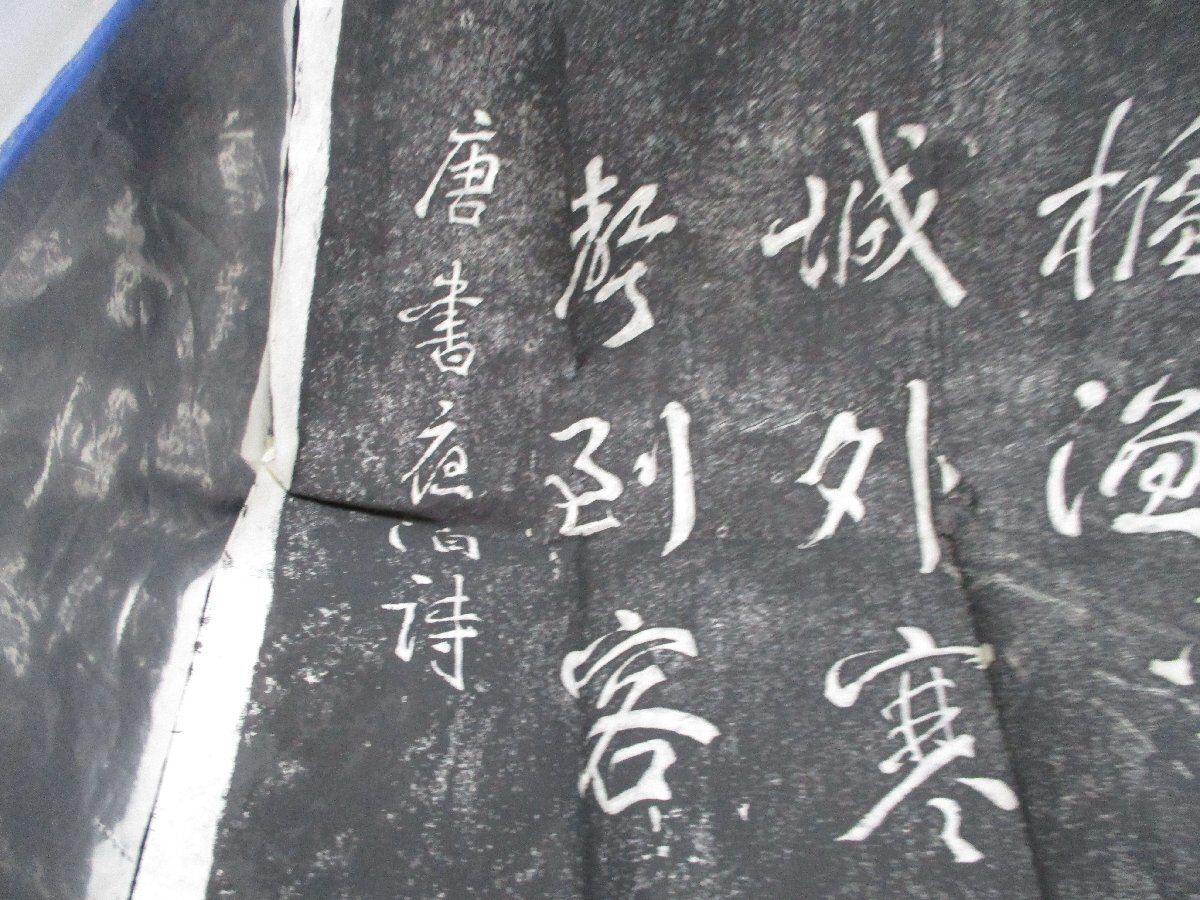 楓漁
城外寒
聲到客
唐書夜泊詩